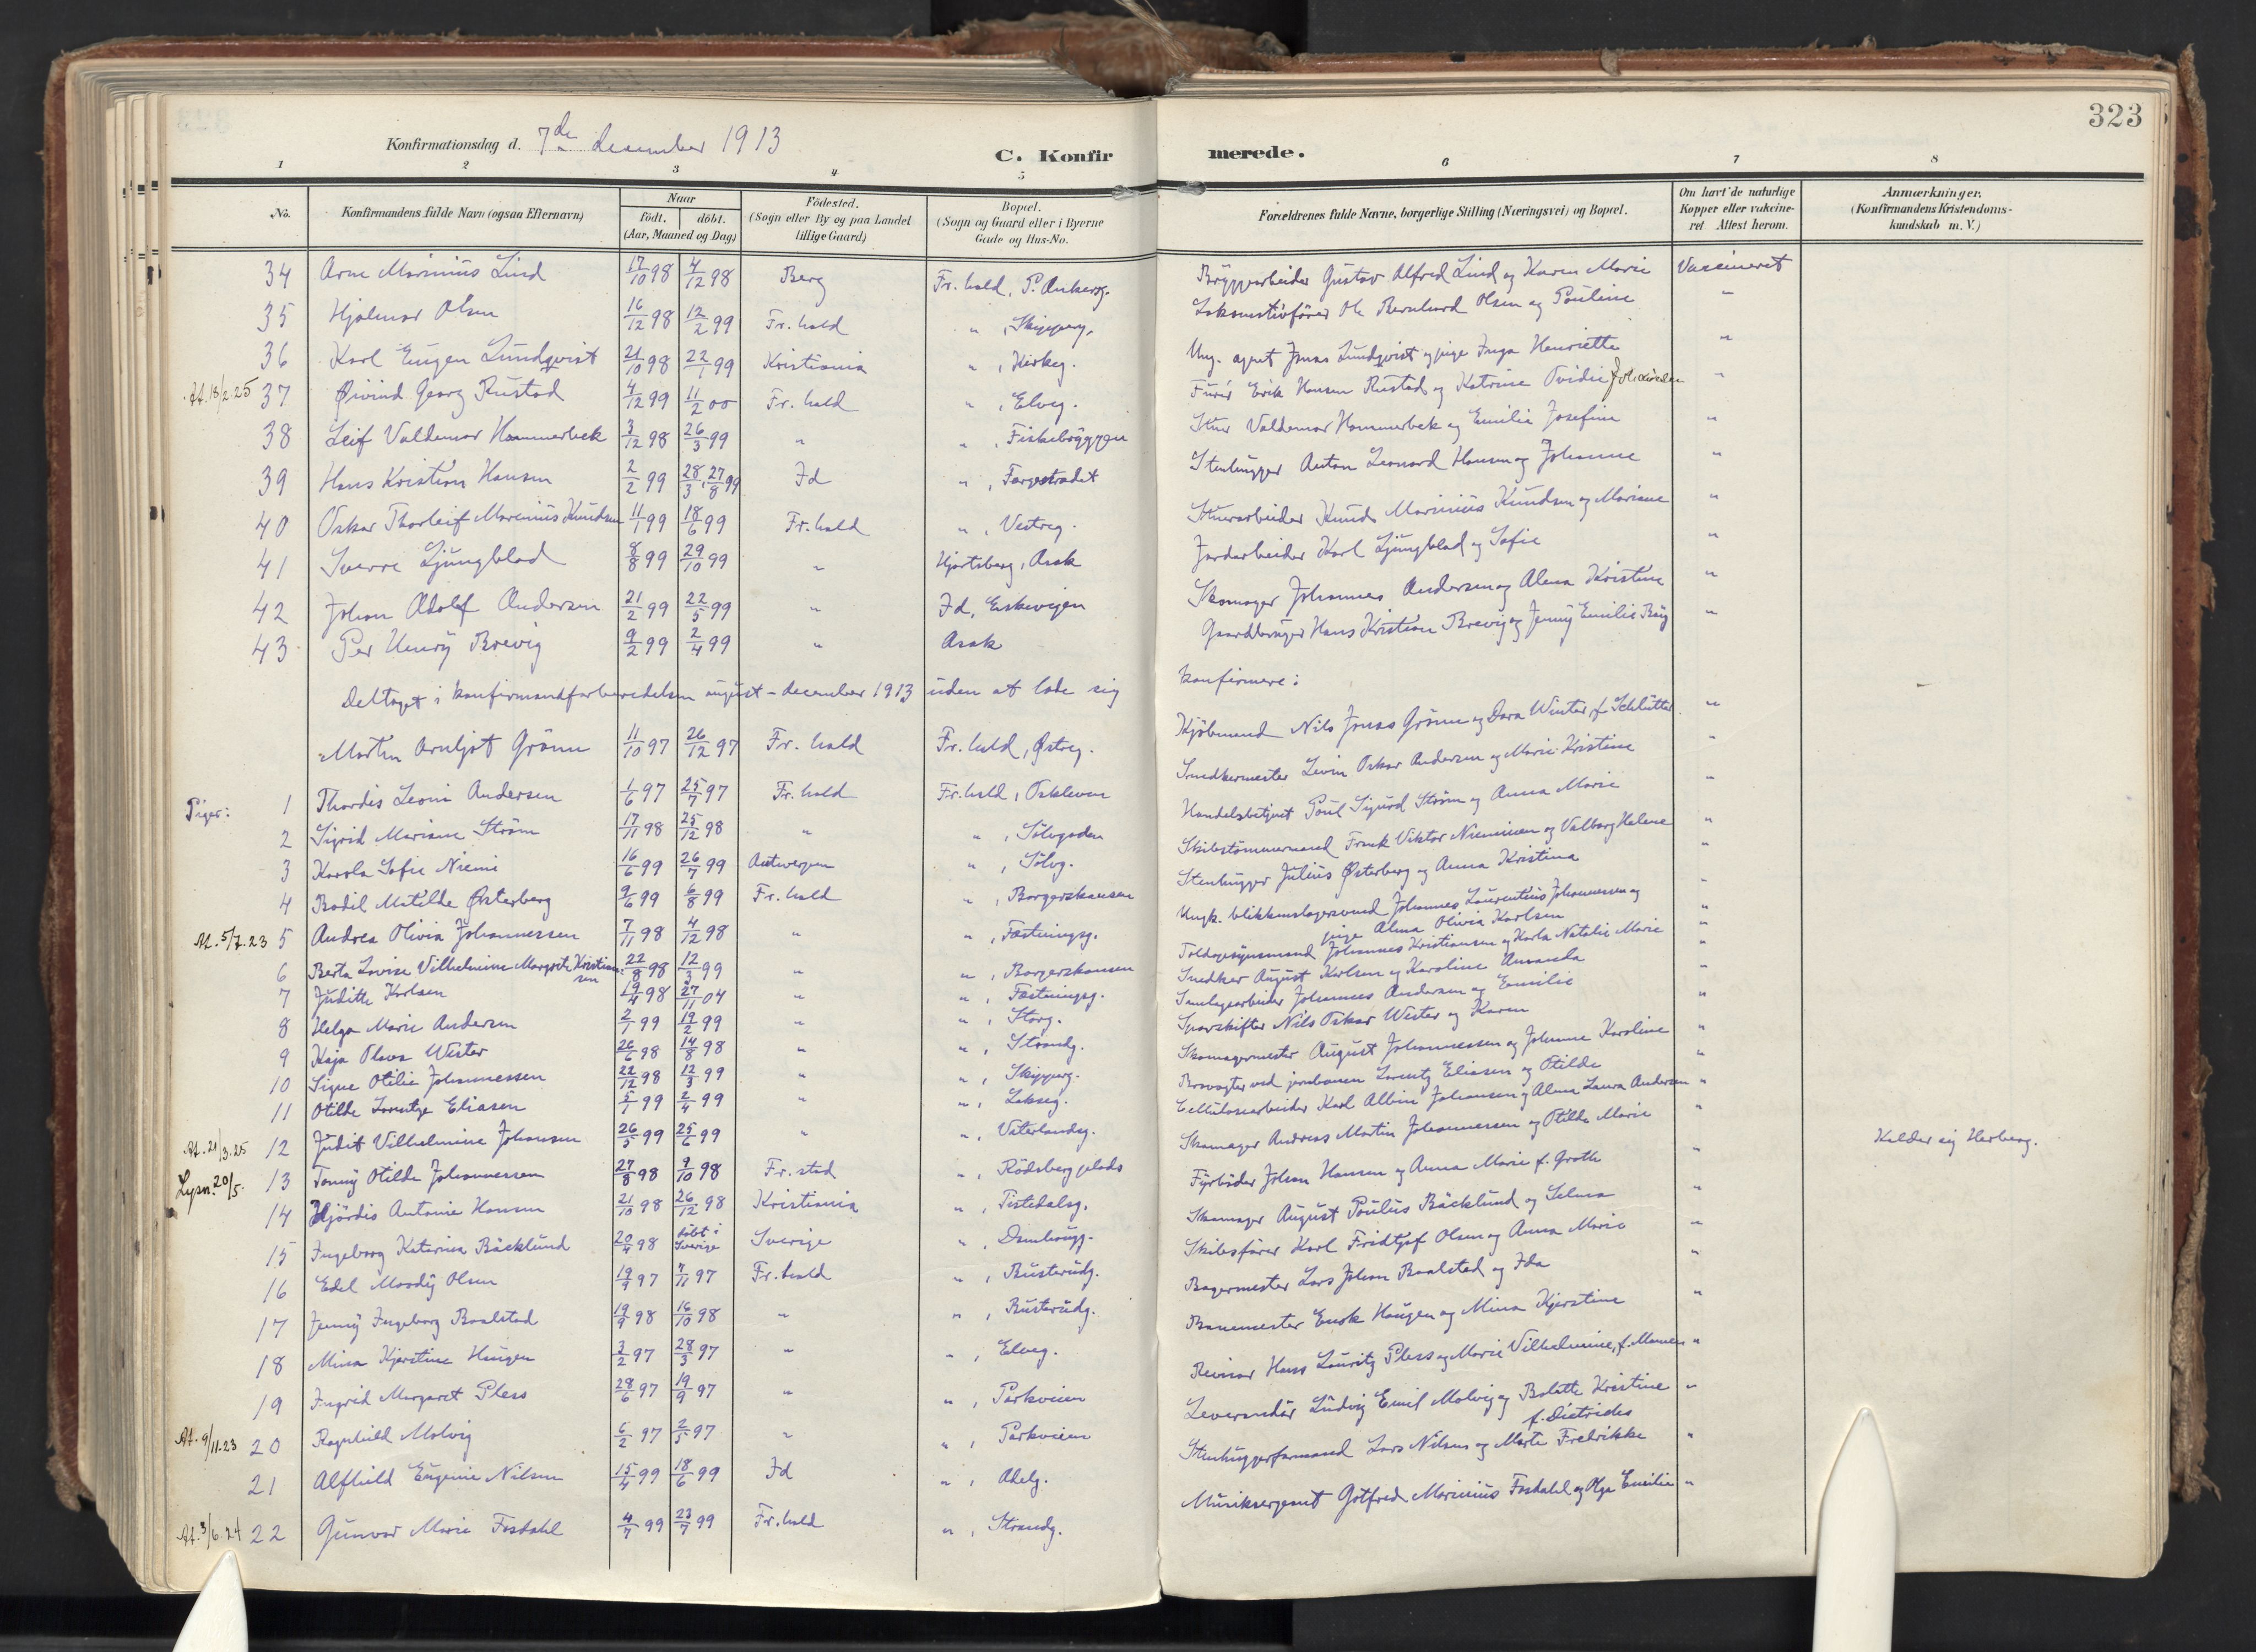 323
Konfirmationsdag d. 7de december 1913
C. Konfirmerede.
1 2 3 4 5 6 7 8
No. | Konfirmandens fulde Navn (ogsaa Efternavn) | Naar født. døbt. (Aar, Maaned og Dag) | Fødested. (Sogn eller By og paa Landet tillige Gaard) | Bopæl. (Sogn og Gaard eller i Byerne Gade og Hus-No. | Forældrenes fulde Navne, borgerlige Stilling (Næringsvei) og Bopæl. | Om havt de naturlige Kopper eller vakcineret. Attest herom. | Anmærkninger. (Konfirmandens Kristendomskundskab m. V.)
34 Arne Marinius Lind 17/10 98 4/12 98 Berg Fr.hald, P. Ankersg. Bryggearbeider Gustav Alfred Lind og Karen Marie Vaccineret
35 Hjalmar Olsen 16/12 98 12/2 99 Fr.hald ", Skipperg. Lokomotivfører Ole Bernhard Olsen og Pauline "
36 Karl Eugen Lundqvist 21/10 98 22/1 99 Kristiania ", Kirkeg. Ung. agent Jonas Lundqvist og pige Inga Henriette "
At. 18/2.25 37 Øivind Georg Rustad 4/12 99 11/2 00 Fr.hald ", Elveg. Furér Erik Hansen Rustad og Katrine Ovidie "
38 Leif Valdemar Hammerbek 3/12 98 26/3 99 " ", Fiskebryggen Stuer Valdemar Hammerbek og Emilie Josefine "
39 Hans Kristian Hansen 2/2 99 28/3, 27/8 99 Id ", Fargestrædet Stenhugger Anton Leonard Hansen og Johanne "
40 Oskar Thorleif Marinius Knudsen 11/1 99 18/6 99 Fr.hald ", Vestreg. Stuerarbeider Knud Marinius Knudsen og Mariane "
41 Sverre Ljungblad 8/8 99 29/10 99 " Hjortsberg, Asak Jordarbeider Karl Ljungblad og Sofie "
42 Johan Adolf Andersen 21/2 99 22/5 99 " Id, Eskevigen Skomager Johannes Andersen og Alma Kristine "
43 Per Henry Brevig 9/2 99 2/4 99 " Asak Gaardbruger Hans Kristian Brevig og Jenny Emilie Berg "
Deltaget i konfirmandforberedelsen august - december 1913 uden at lade sig konfirmere:
Martin Arnljot Grønn 11/10 97 26/12 97 Fr.hald Fr.hald, Østreg. Kjøbmand Nils Jonas Grønn og Dora Winter, f. Schlütter "
Piger: 1 Thordis Leoni Andersen 1/6 97 25/7 97 Fr.hald Fr.hald, Oskleven Snedkermester Levin Oskar Andersen og Marie Kristine "
2 Sigrid Mariane Strøm 17/11 98 25/12 98 " ", Sølvgaden Handelsbetjent Poul Sigurd Strøm og Anna Marie "
3 Karola Sofie Niemi 16/6 99 26/7 99 Antwerpen ", Sølvg. Skibstømmermand Frank Viktor Nieminen og Valborg Helene "
4 Bodil Matilde Østerberg 9/6 99 6/8 99 Fr.hald ", Borgerskansen Stenhugger Julius Østerberg og Anna Kristina "
At. 5/7.23 5 Andrea Olivia Johannessen 7/11 98 4/12 98 " ", Fæstningsg. Ungk. blikkenslagersvend Johannes Laurentius Johannessen og pige Alma Olivia Karlsen "
6 Berta Lovise Vilhelmine Margrete Kristiansen 22/8 98 12/3 99 " ", Borgerskansen Toldopsynsmand Johannes Kristiansen og Karla Natalie Marie "
7 Judith Karlsen 19/4 98 27/11 04 " ", Fæstningsg. Snedker August Karlsen og Karoline Amanda "
8 Helga Marie Andersen 2/1 99 19/2 99 " ", Storg. Samlagsarbeider Johannes Andersen og Emilie "
9 Kaja Olava Wister 26/6 98 14/8 98 " ", Strandg. Sporskifter Nils Oskar Wister og Karen "
10 Signe Otilie Johannessen 22/12 98 12/3 99 " ", Skipperg. Skomagermester August Johannessen og Johanne Karoline "
11 Otilde Lorentze Eliasen 5/1 99 2/4 99 " ", Lakseg. Brovogter ved jernbanen Lorentz Eliasen og Otilde "
At. 21/3.25 12 Judit Vilhelmine Johansen 26/3 99 25/6 99 " ", Vaterlandsg. Cellulosearbeider Karl Albin Johansen og Alma Laura Andersen "
Lysn. 20/5. 13 Tonny Otilde Johannessen 27/8 98 9/10 98 Fr.stad ", Rødsbergplads Skomager Andreas Martin Johannessen og Otilde Marie " Kalder sig Herberg.
14 Hjørdis Antonie Hansen 21/10 98 26/12 98 Kristiania ", Tistedalsg. Fyrbøder Johan Hansen og Anna Marie f. Groth "
15 Ingeborg Katarina Bäcklund 20/4 98 døbt i Sverige Sverige ", Damhaugg. Skomager August Paulus Bäcklund og Selma "
16 Edel Moody Olsen 19/9 97 7/11 97 Fr.hald ", Busterudg. Skibsfører Karl Fridtjof Olsen og Anna Marie "
17 Jenny Ingeborg Baalstad 19/9 98 16/10 98 " ", Busterudg. Bagermester Lars Johan Baalstad og Ida "
18 Mina Kjerstine Haugen 3/2 97 28/3 97 " ", Elveg. Banemester Enok Haugen og Mina Kjerstine "
19 Ingrid Margaret Pless 28/6 97 19/9 97 " ", Parkveien Revisor Hans Lauritz Pless og Marie Vilhelmine, f. Mamen "
At. 9/11.23 20 Ragnhild Molvig 6/2 97 2/5 97 " ", Parkveien Leverandør Ludvig Emil Molvig og Bolette Kristine f. Dietrichs "
21 Alfhild Eugenie Nilsen 15/4 99 18/6 99 Id ", Adelg. Stenhuggerformand Lars Nilsen og Marte Fredrikke "
At. 3/6.24 22 Gunvor Marie Fosdahl 4/7 99 23/7 99 Fr.hald ", Strandg. Musiksergeant Gotfred Marinius Fosdahl og Olga Emilie "